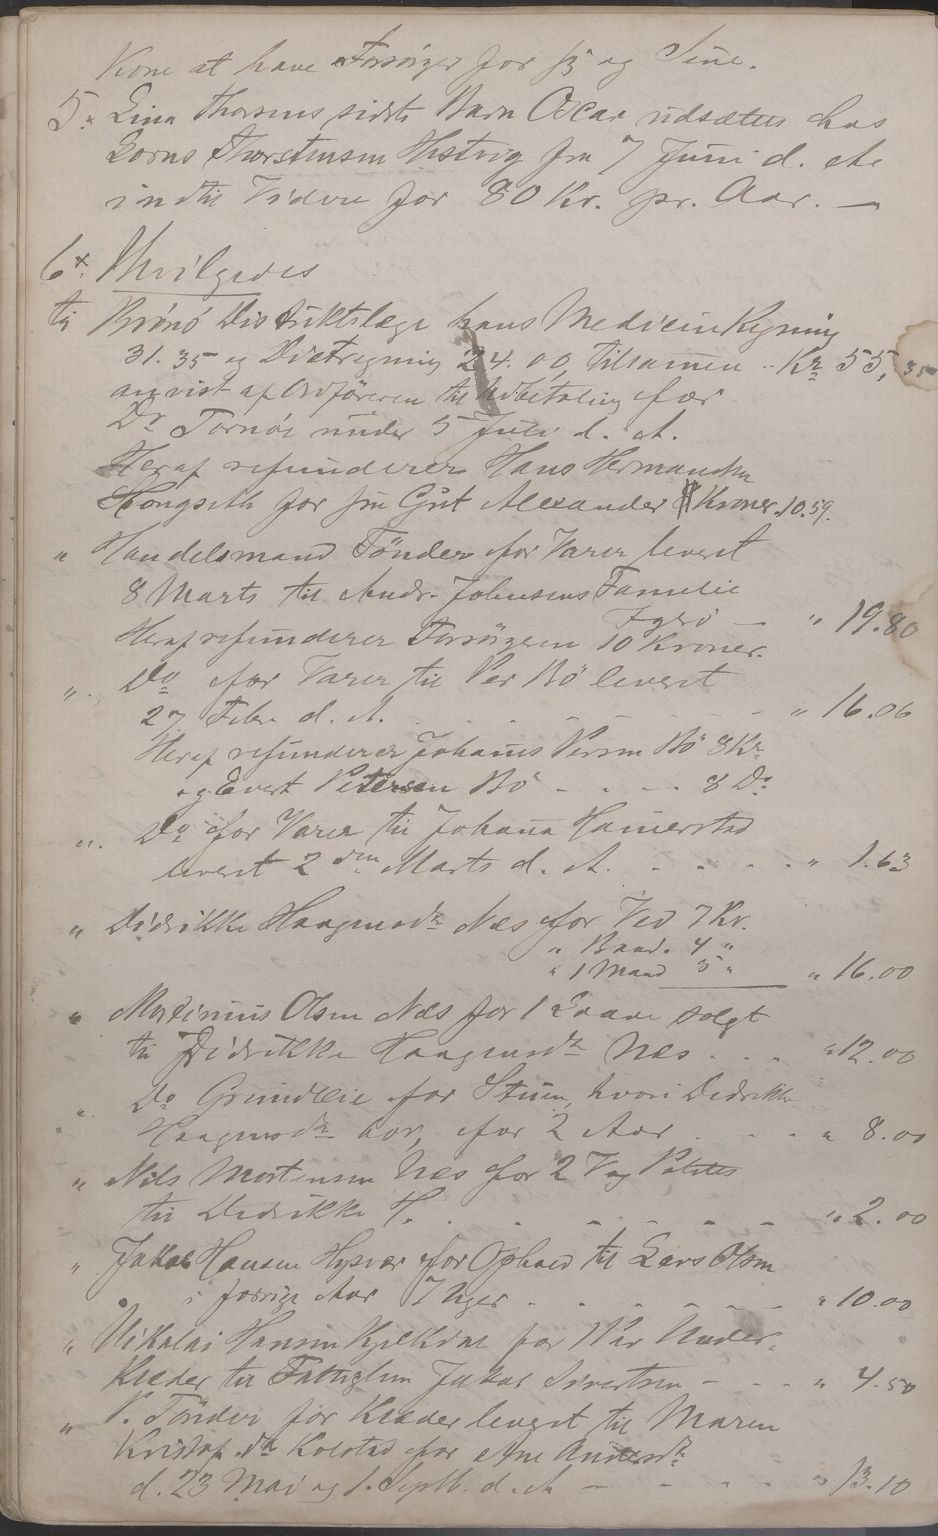 Kone at have Forsörger for sig og Sine.
5. Lina Thorsens sidste Barn Oscar udsættes hos
Thorstensen Hestvig fra 7 Juni d. A.
indtil Videre for 80 Kr. pr. Aar. —
6. Bevilgedes
til Brönö Distriktslæge hans Medicin Regning
31.35 og Diætregning 24.00, tilsamen .. Kr 55,35
anvist af Ordföreren til Udbetaling for
Dr Tornöe under 5 Juli d. A.
Heraf refunderer Hans Hermandsen
Hongseth for sin Gut Alexander Kroner 10.59.
" Handelsmand Tönder for Varer leveret
8 Marts til Andr. Johnsens Familie
— " 19.80
Heraf refunderer Forsörgeren 10 Kroner.
" Do for Varer til Per Bö leveret
27 Febr d. A. . . . - - - - " 16.06
Heraf refunderer Johanes Persen Bö 8 Kr
og Evert Petersen Bö - . - - 8 Do
". Do for Varer til Johana Hamerstad
leveret 2 den Marts d. A. . - . . . " 1.63
" Didrikke Haagensdr Næs for Ved 7 Kr.
" Baad. 4 "
" 1 Mand 5 " " 16.00
" Mortinus Olsen Næs for 1 Laave solgt
til Didrikke Haagensdr Næs . . . "12.00
" Do Grundleie for Stuen, hvori Dedrikke
Haagensdr bor, for 2 Aar . . . " 8.00
" Nils Mortensen Næs for 2 Vog Potetes
til Dedrikke H. . . - - - - - " 2.00
" Jakob Hansen Hysvær for Ophold til Lars Olsen
i forrige Aar 7 Uger . . . - - - " 10.00
" Nikolai Hansen for Par Under-
Klæder til Jakob Sivertsen - - - " 4.50
" P. Tönder for Klæder leveret til Maren
Kristof.dr Kolstad for Ane Andersdr
d. 23 Mai og 1. Septb. d. A — - - - " 13.10